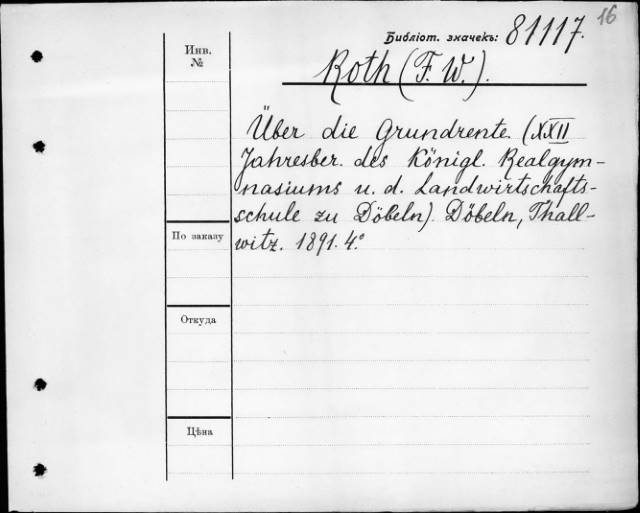 16
Библіот. значекъ: 81117.
Инв.
№
Roth (F. W.).
Über die Grundrente (XXII
Jahresber. des Königl. Realgym-
nasiums u. d. Landwirtschafts-
schule zu Döbeln). Döbeln, Thall-
witz. 1891. 4.º
По заказу
Откуда
Цѣна